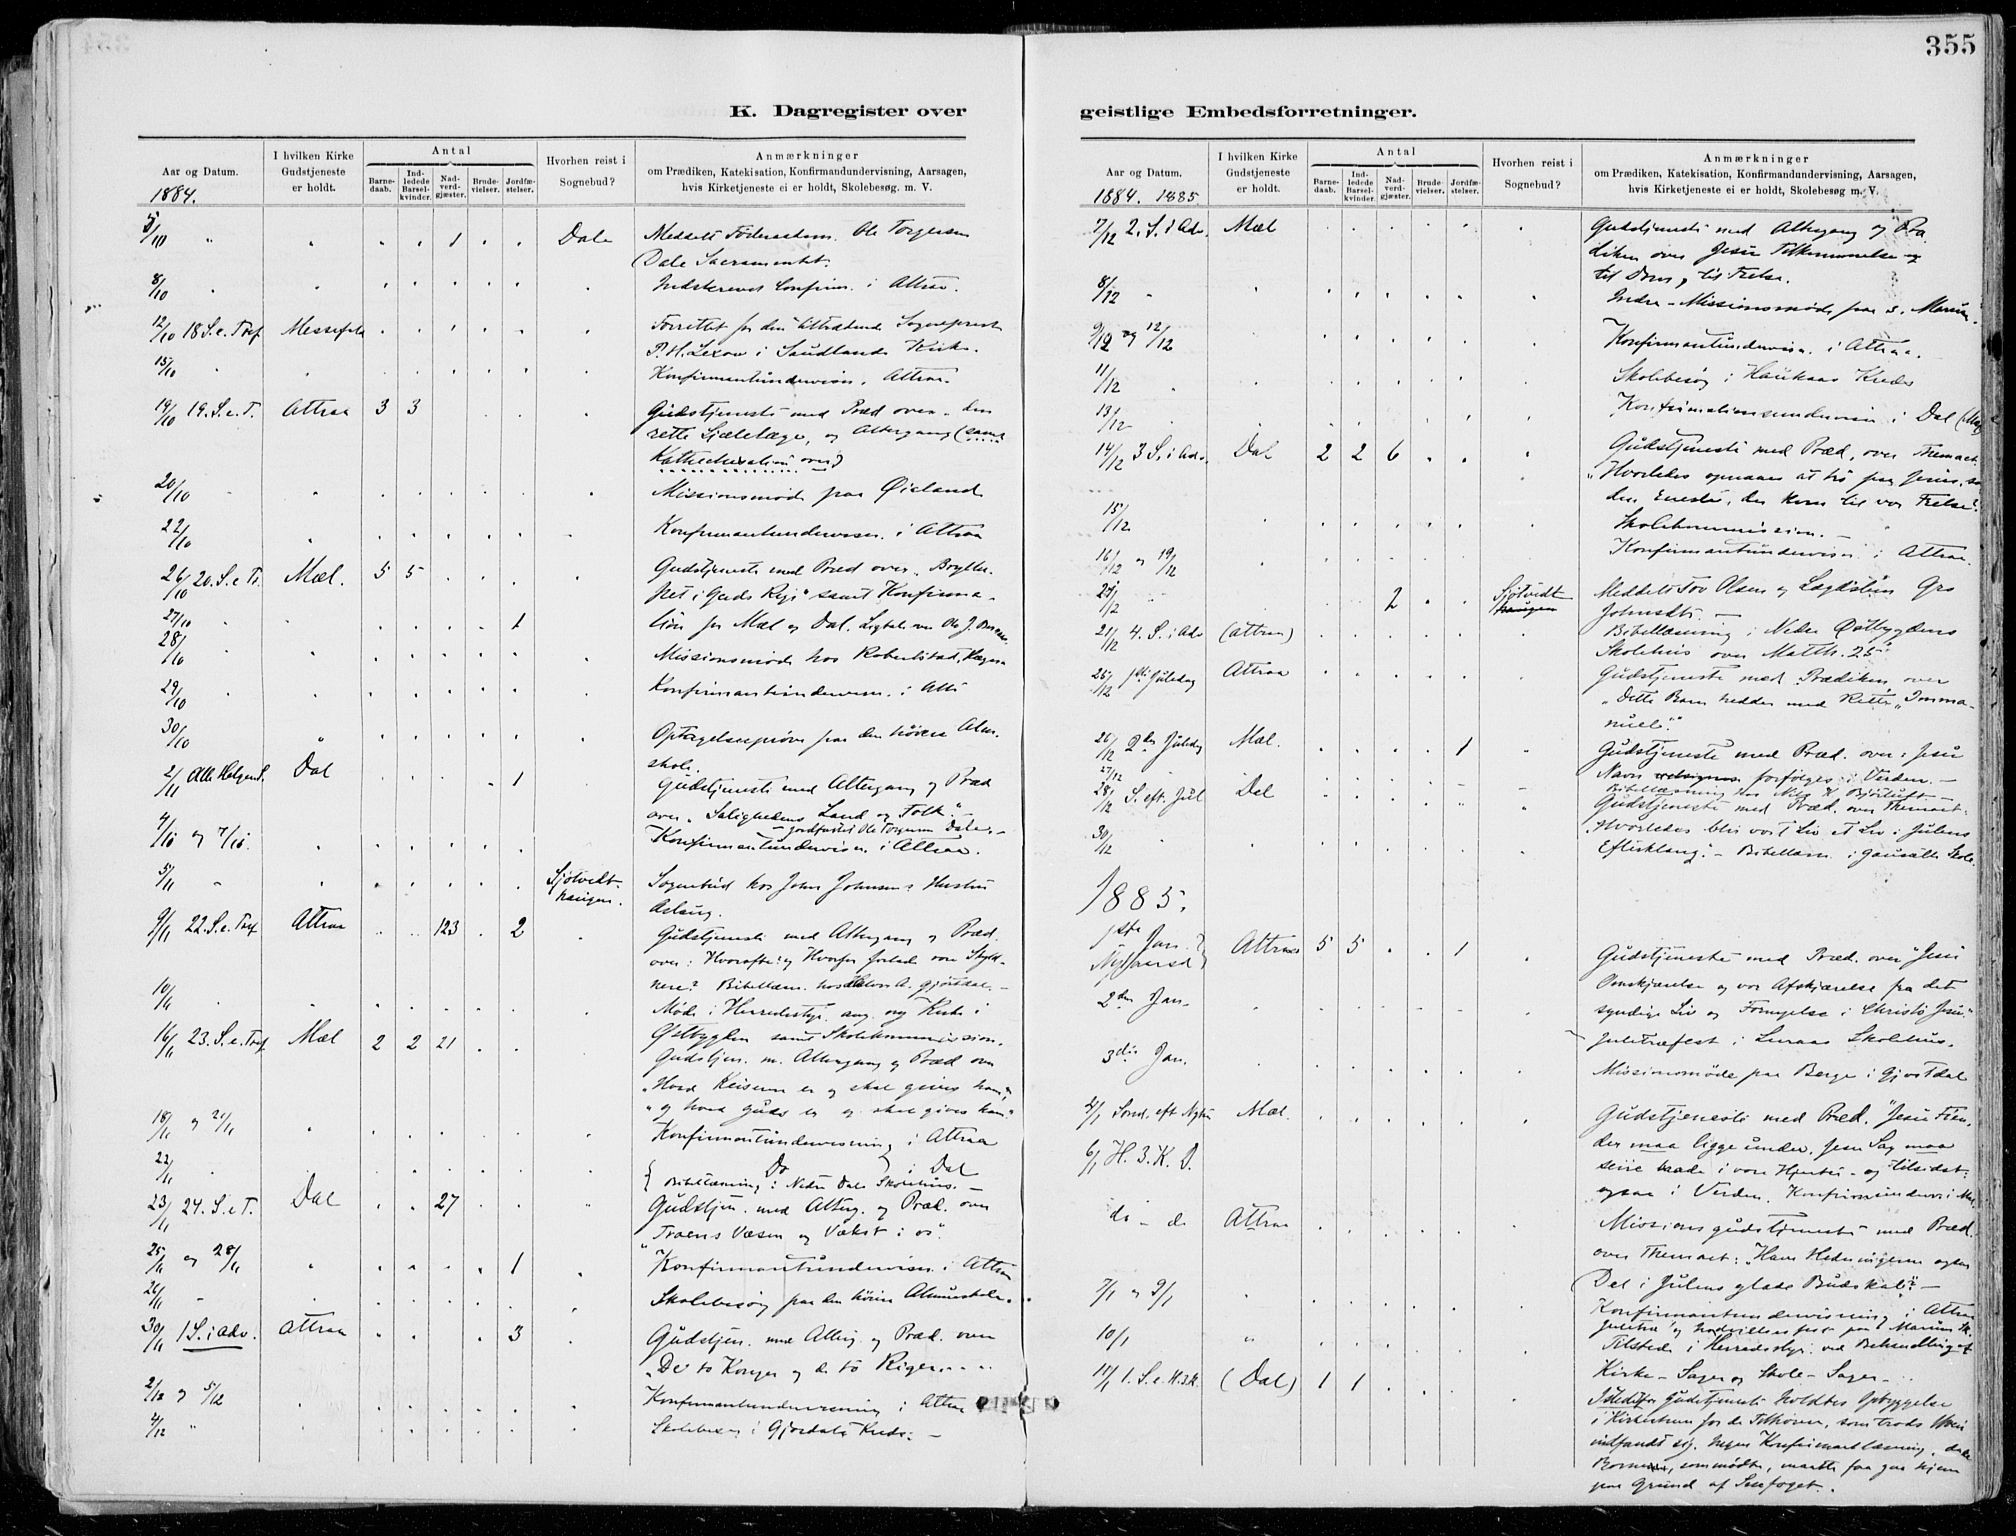 355
K. Dagregister over
geistlige Embedsforretninger.
Aar og Datum.
I hvilken Kirke Gudstjeneste er holdt.
Antal
Barnedaab.
Indledede Barselkvinder.
Nadverdgjæster.
Brudevielser.
Jordfæstelser.
Hvorhen reist i Sognebud?
Anmærkninger
om Prædiken, Katekisation, Konfirmandundervisning, Aarsagen,
hvis Kirketjeneste ei er holdt, Skolebesøg m. V.
1884.
5/10 " 1 Dale Meddelt Føderaadsm. Ole Torgersen
Dale Sacramentet.
8/10 Indskrevet Confirm. i Attraa.
12/10 18 S. e. Tref. Messefald Forrettet for den tiltrædende Sogneprest
P. H. Lexow i Saudlands Kirke.
15/10 Konfirmantundervisn. Attraa.
19/10 19. S. e. T. Attraa 3 3 Gudstjeneste med Præd over "den
rette Sjælelæge, og Altergang (samt
Kathechisation over)
20/10 Missionsmøde paa Øieland
22/10 Konfirmantundervisn. i Attraa
26/10 20. S. e. Tr. Mæl. 5 5 Gudstjeneste med Præd over "Brylluppet
i Guds Rige" samt Konfirma-
27/10 1 tion for Mæl og Dal.
28/10 Missionsmøde hos
29/10 Konfirmantundervisn. i Att
30/10 Optagelsesprøve paa den høiere Alm.
skole.
2/11 Alle Helgens. Dal 1 Gudstjeneste med Altergang og Præd
over "Salighedens Land og Folk." -
- jordfæstet Ole Torgersen Dale. -
4/10 og 7/10. Konfirmantundervisn. i Attraa.
5/11 Sjøtvedt-haugen. Sognebud hos John Johnsens Hustru
Aslaug.
9/11 22. S. e. Tref Attraa 123 2 Gudstjeneste med Altergang og Præd.
over: Hvorofte? og Hvorfor forlade vore Skyld-
nere? Bibellæsn. hos A. Gjøsdal. -
10/11 Møde i Herredsstyr. ang. ny Kirke i
Østbygden samt Skolekommission.
16/11 23. S. e. Tref. Mæl 2 2 21 Gudstjen. m. Altergang og Præd over
"Hvad Keiserens er og skal gives ham",
"og hvad Guds er og skal gives ham."
18/11 og 21/11 Konfirmantundervisning i Attraa
22/11 Do i Dal
Bibellæsning i Nedre Dals Skolehus. -
23/11 24. S. e. T. Dal 27 Gudstjen. med Alterg. og Præd. over
"Troens Væsen og Vækst i os".
25/11 og 28/11 1 Konfirmantundervisn. i Attraa
26/11 Skolebesøg paa den høiere Almueskole.
30/11 1 S. i Adv. Attraa 3 Gudstjen. med Alterg. og Præd. over
"De to Konger og de to Riger...."
2/12 og 5/12 Konfirmantundervisning i Attraa
4/12 " Skolebesøg i Gjøsdals Kreds. -
Aar og Datum.
I hvilken Kirke Gudstjeneste er holdt.
Antal
Barnedaab.
Indledede Barselkvinder.
Nadverdgjæster.
Brudevielser.
Jordfæstelser.
Hvorhen reist i Sognebud?
Anmærkninger
om Prædiken, Katekisation, Konfirmandundervisning, Aarsagen,
hvis Kirketjeneste ei er holdt, Skolebesøg m. V.
1884. 1885
7/12 2. S. i Adv. Mæl Gudstjeneste med Altergang og Præ-
diken over Jesu Tilkommelse
til Dom, til Frelse.
8/12 Indre-Missionsmøde paa
9/12 og 12/12 Konfirmantundervisn. i Attraa.
11/12 Skolebesøg i Haukaas Kreds
13/12 Konfirmationsundervisn i Dal
14/12 3 S. i Adv. Dal 2 2 6 Gudstjeneste med Præd. over Themaet
"Hvorledes opnaaes at tro paa Jesus, som
den Eneste, der kom til vor Frelse".
15/12 Skolekommission. -
16/12 og 19/12 Konfirmantundervisn i Attraa.
2 Sjøtvedt Meddelt Tov Olsen og Gro
Johnsdtr. -
21/12 4. S. i Adv (Attraa) Bibellæsning i Nedre Østbygdens
Skolehus over Matth. 25.
25/12 1ste Juledag Attraa Gudstjeneste med Prædiken over
"Dette Barn hedder med Rette "Imma-
nuel".
26/12 2den Juledag Mæl. 1 Gudstjeneste med Præd. over: Jesu
Navn forfølges i Verden. -
27/12 Bibellæsning hos
28/12 S. eft. Jul Dal Gudstjeneste med Præd. over Themaet:
"Hvorledes bliv vort Liv et Liv i Julens
30/12 Efterklang". - Bibellæsn. i Skole.
1885.
1ste Jan. Nytaarsd Attraa 5 5 1 Gudstjeneste med Præd. over "Jesu
Omskjærelse og vor Afskjærelse fra det
2den Jan. syndige Liv og Fornyelse i Christo Jesu."
Juletræfest i Luraas Skolehus.
3die Jan. Missionsmøde paa Berge i Gjøsdal
4/1 Sønd. eft Nytår Mæl. Gudstjeneste med Præd. "Jesu Fien-
der maa ligge under. Jesu Sag maa
6/1 H. 3. K. D. seire baade i vore Hjerter - og tilsidst
ogsaa i Verden.
do - do Attraa Missionsgudstjeneste med Præd.
over Themaet: "Have Hedningerne ogsaa
Del i Julens glade Budskab?" -
7/1 og 9/1 Konfirmantundervisning i Attraa
10/1 " Tilstede i Herredsstyr. ved Behandling af
Kirke-Sager og Skole-Sager.
11/1 1. S. e. H.3.K. (Dal) 1 1 Istedetfor Gudstjeneste holdtes Opbyggelse
i Kirkestuen for de Tilhørere, som trods Veiret
indfandt sig. Ingen Konfirmantlæsning, da de
Børn, som mødte, maatte faa gaa hjem
paa Grund af Snefoget.